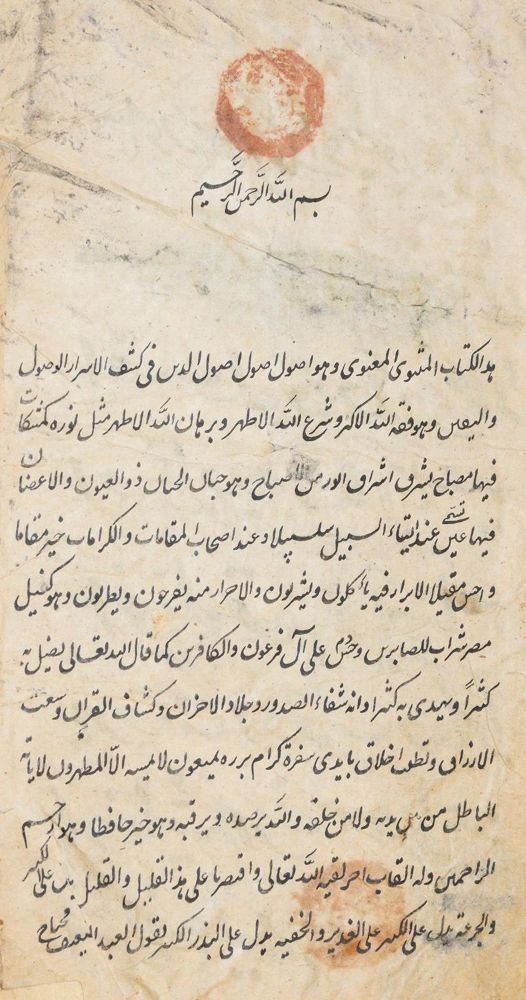 بسم الله الرحمن الرحيم
هذا الكتاب المثنوى المعنوى وهو اصول اصول اصول الدين فى كشف الاسرار الوصول
واليقين وهو فقه الله الاكبر وشرع الله الاطهر وبرهان الله الاظهر مثل نوره كمشكات
فيها مصباح يشرق اشراقا انور من الاصباح وهو جنان الجنان ذو العيون والاغصان
فيها عين تسمى عند ابناء السبيل سلسبيلا وعند اصحاب المقامات والكرامات خير مقاما
واحسن مقيلا الابرار فيه ياكلون ويشربون والاحرار منه يفرحون ويطربون وهو كنيل
مصر شراب للصابرين وحسرة على آل فرعون والكافرين كما قال الله تعالى يضل به
كثيرا ويهدى به كثيرا وانه شفاء الصدور وجلاء الاحزان وكشاف القرآن وسعت
الارزاق وتطيب اخلاق بايدى سفرة كرام برره يمنعون لا يمسه الا المطهرون لا ياته
الباطل من بين يديه ولا من خلفه والله يرصده ويرقبه وهو خير حافظا وهو ارحم
الراحمين وله القاب اخر لقبه الله تعالى واقتصرنا على هذا القليل والقليل يدل على الكثير
والجرعة يدل على الغدير والحفنه يدل على البذر الكبير يقول العبد الضعيف محتاج